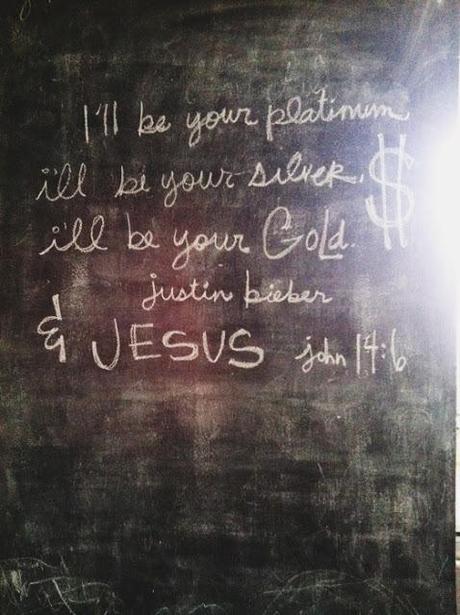 I'll be your platinum
ill be your silver. $
ill be your Gold.
justin bieber
& JESUS john 14:6